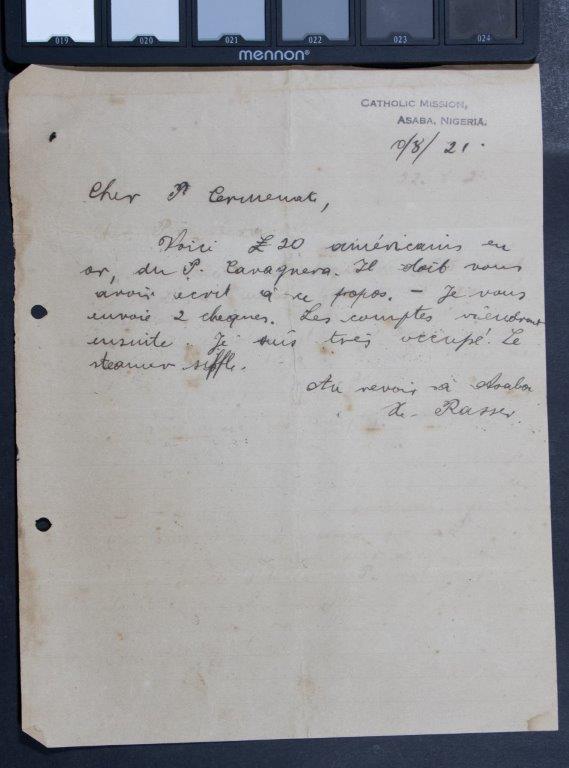 019 020 021 022 023 024
mennon®
CATHOLIC MISSION,
ASABA, NIGERIA.
10/8/21.
Cher P. Cermenati,
Voici £ 20 américains en
or, du P. Cavagnera. Il doit vous
avoir écrit à ce propos. - Je vous
envoie 2 cheques. Les comptes viendront
ensuite. Je suis très occupé. Le
steamer siffle.
Au revoir à Asaba
Rasser.